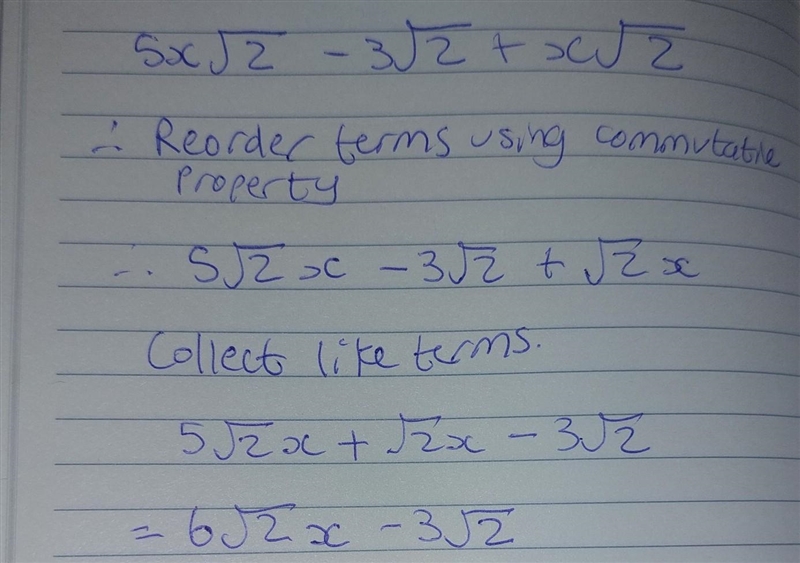 5x√2 - 3√2 + x√2
∴ Reorder terms using commutative
property
∴ 5√2 x - 3√2 + √2 x
Collect like terms.
5√2x + √2x - 3√2
= 6√2x - 3√2